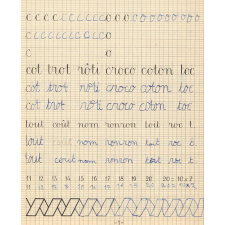 c c c c c c c c o o o o o o o o o o
c c c c c c c c c c o
c o
cot trot rôti croco coton toc
cot trot rôti croco coton toc
cot trot rôti croco coton toc
tout coût nom ronron toit roc t
tout nom ronron toit roc t
tout cout nom ronron toit roc t
11 12 13 14 15 16 17 18 19 20
11 12 13 14 15 16 17 18 19 20